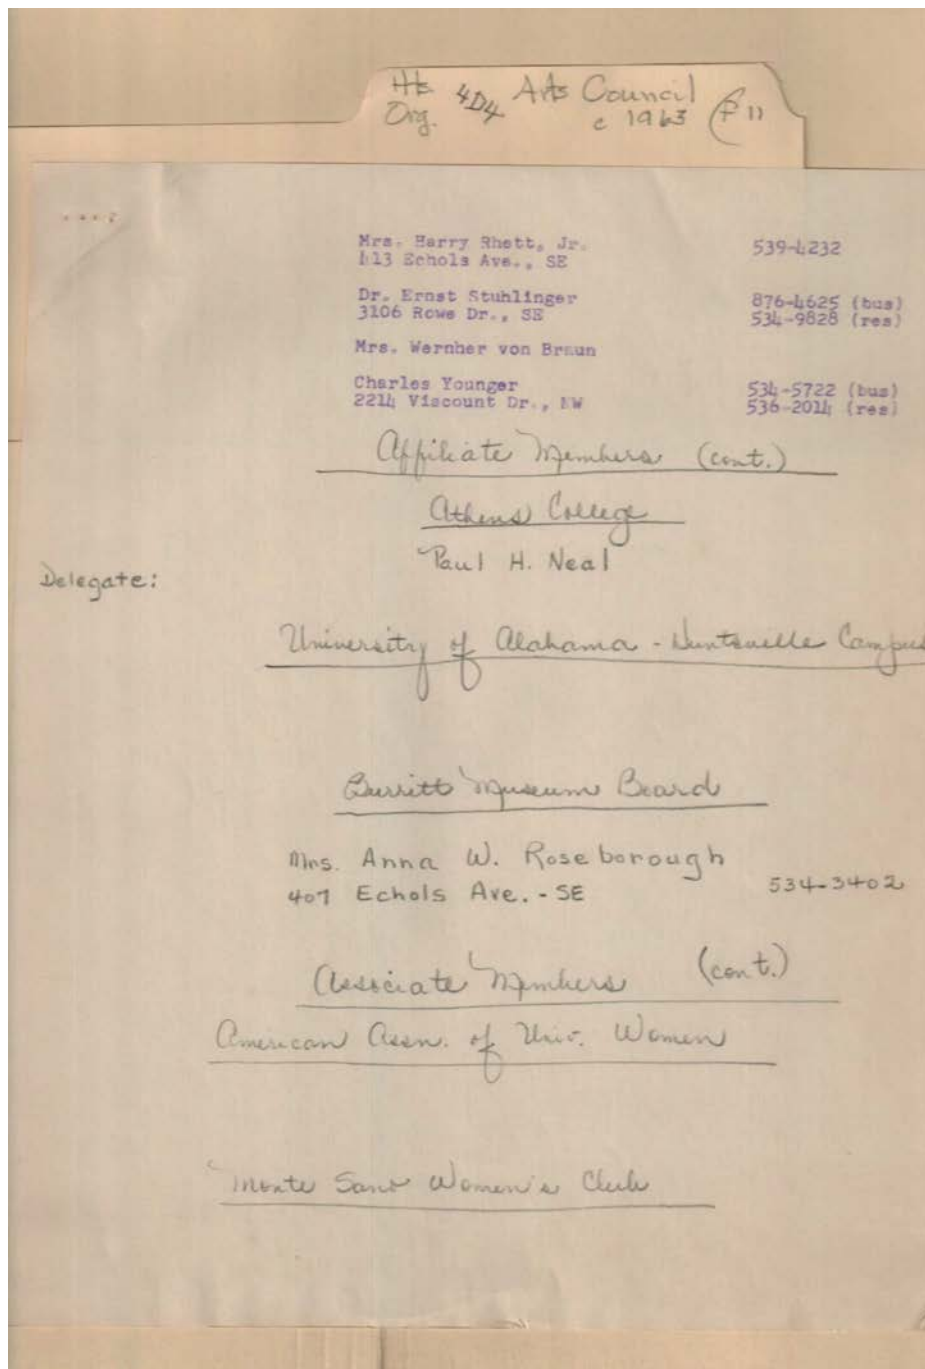 Hts 4D4 Arts Council
Org. c 1963 F 11
Mrs. Harry Rhett, Jr. 539-4232
413 Echols Ave., SE
Dr. Ernst Stuhlinger 876-4625 (bus)
3106 Rowe Dr., SE 534-9828 (res)
Mrs. Wernher von Braun
Charles Younger 534-5722 (bus)
2214 Viscount Dr., NW 536-2014 (res)
Affiliate Members (cont.)
Athens College
Paul H. Neal
Delegate:
University of Alabama - Huntsville Campus
Burritt Museum Board
Mrs. Anna W. Roseborough
407 Echols Ave. - SE 534-3402
Associate Members (cont.)
American Assn. of Univ. Women
Monte Sano Women's Club